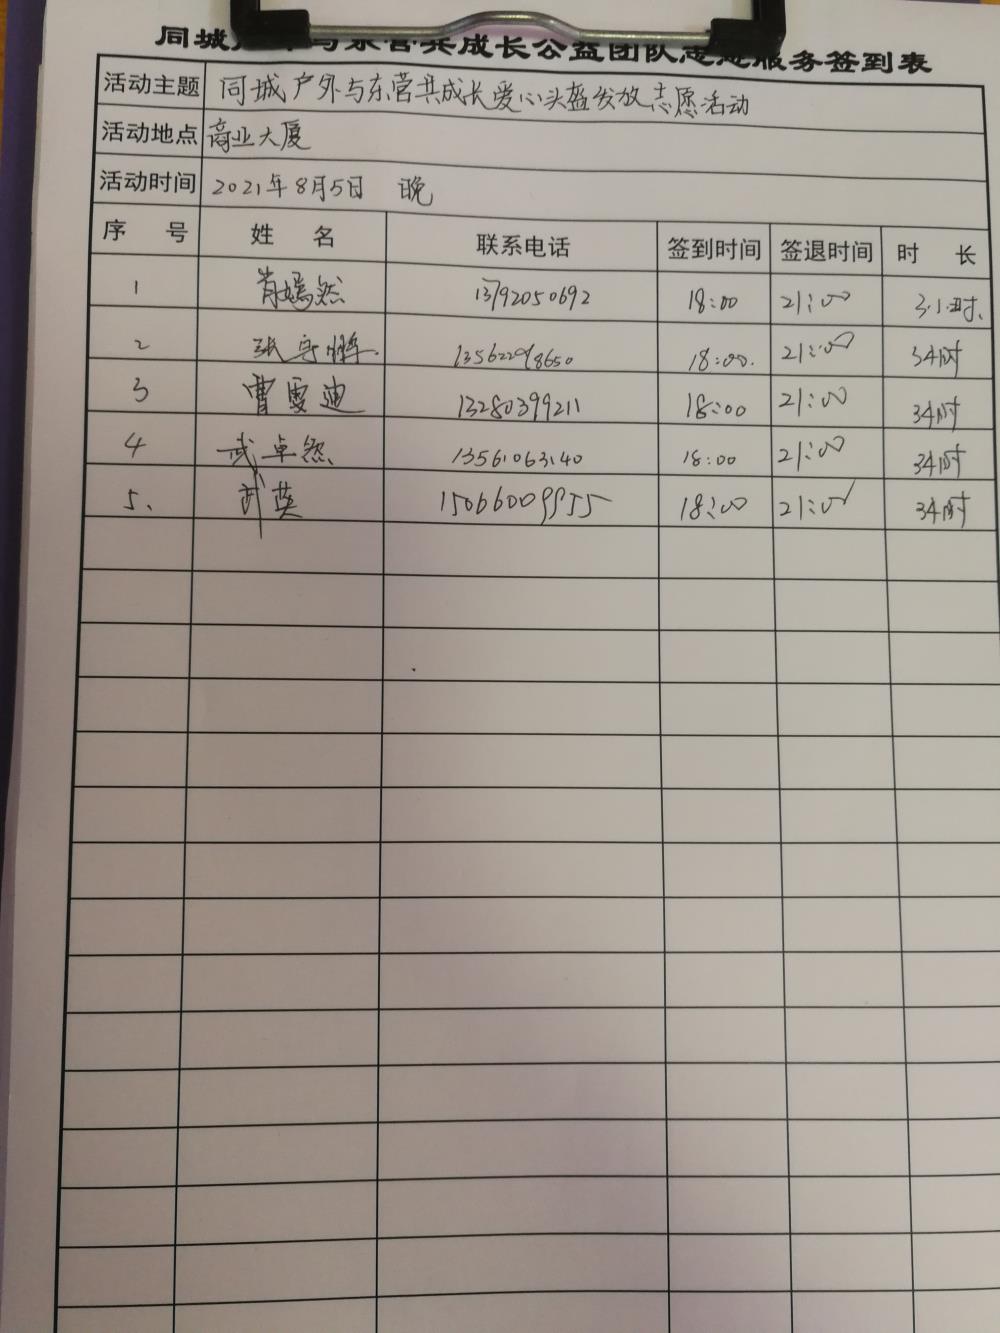 同城户外与东营共成长公益团队志愿服务签到表
活动主题 同城户外与东营共成长爱心头盔发放志愿活动
活动地点 商业大厦
活动时间 2021年8月5日 晚
序 号 姓 名 联系电话 签到时间 签退时间 时 长
1 肖嫣然 13792050692 18:00 21:00 3小时、
2 张守 18:00. 21:00 3小时
3 曹雯迪 13280399211 18:00 21:00 3小时
4 武卓然 13561063140 18:00 21:00 3小时
5、 武英 15066009955 18:00 21:00 3小时